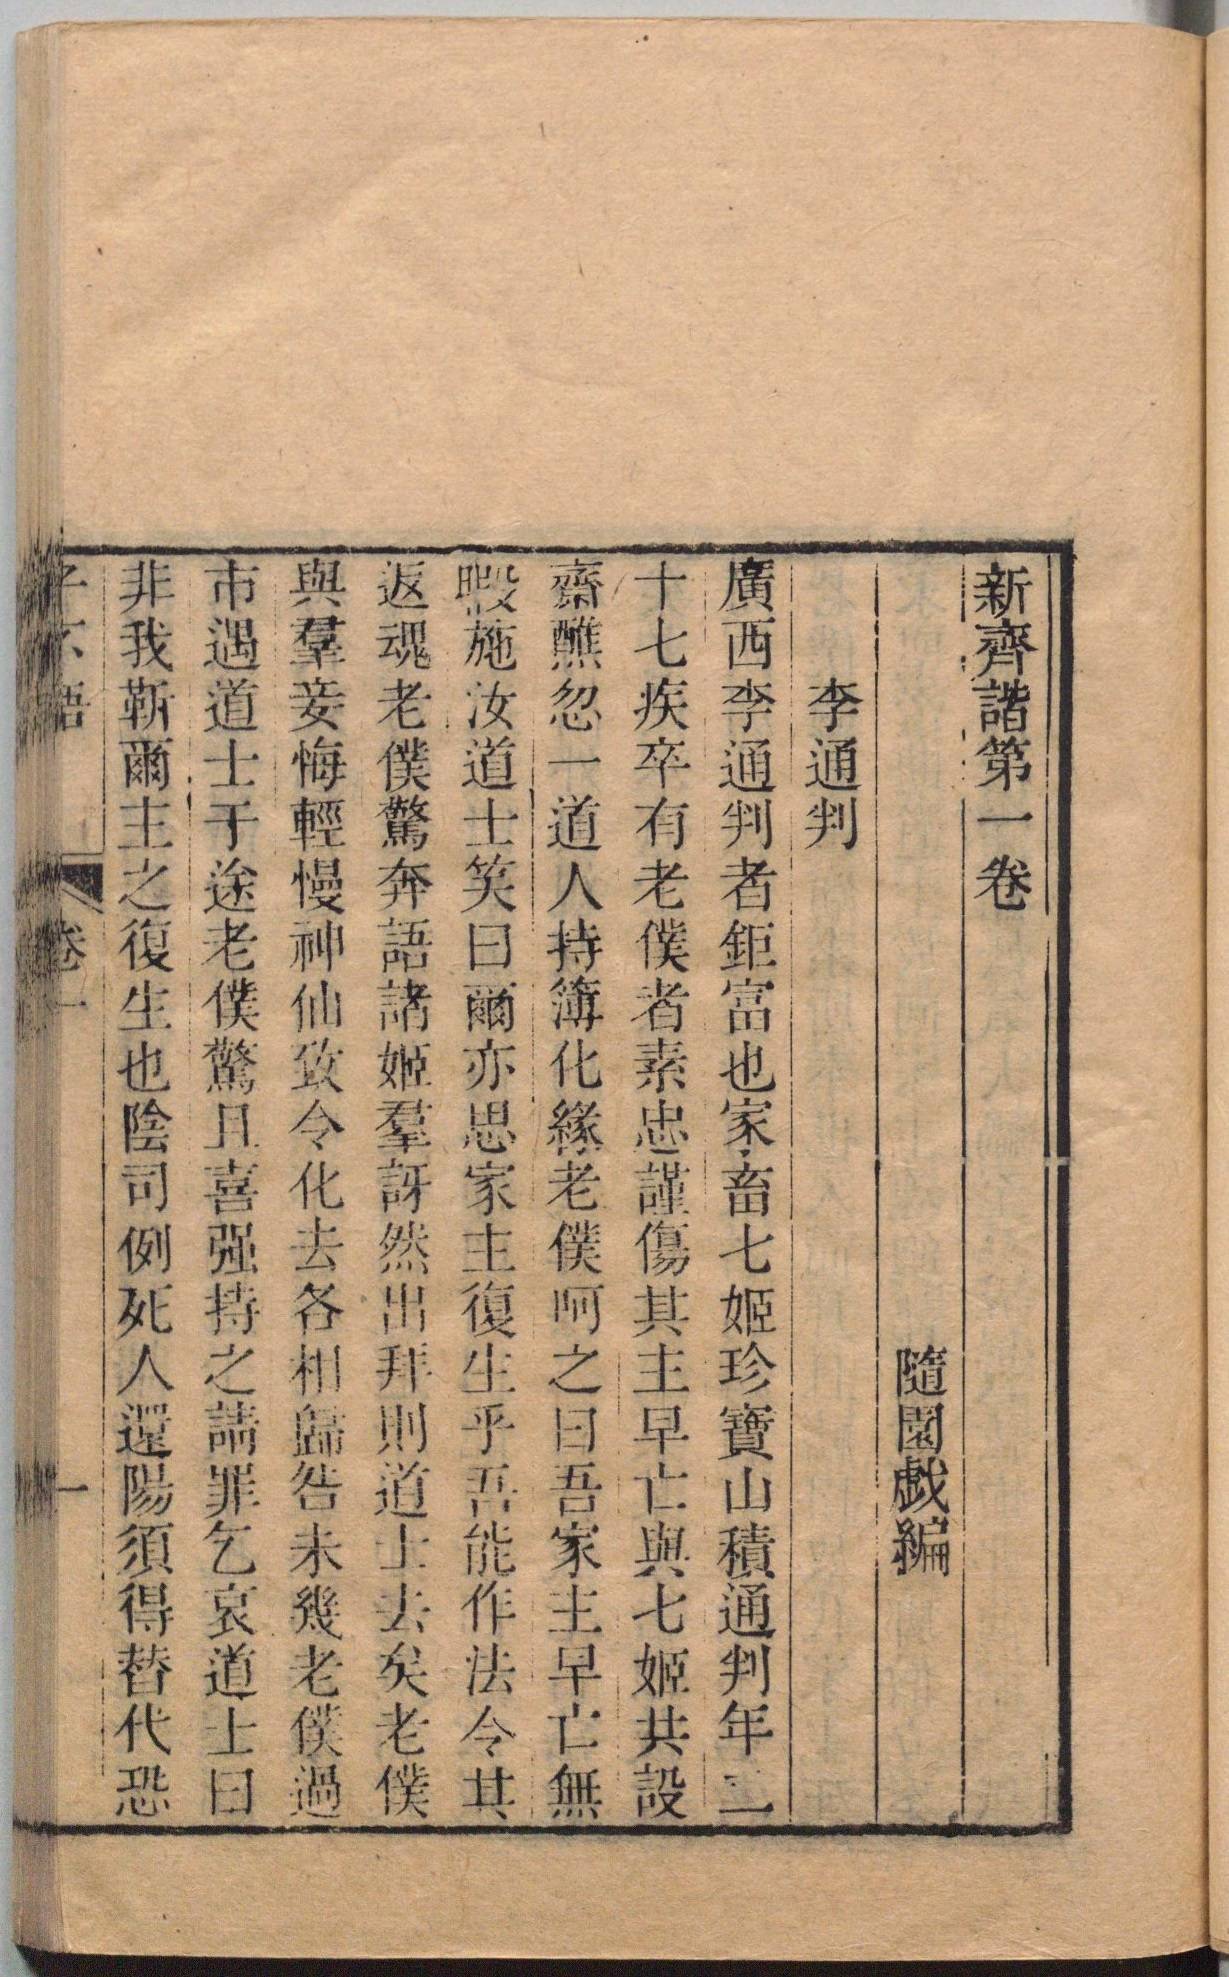 新齊諧第一卷
隨園戯編
李通判
廣西李通判者鉅富也家畜七姬珍寶山積通判年二
十七疾卒有老僕者素忠謹傷其主早亡與七姬共設
齋醮忽一道人持簿化緣老僕呵之曰吾家主早亡無
暇施汝道士笑曰爾亦思家主復生乎吾能作法令其
返魂老僕驚奔語諸姬羣訝然出拜則道士去矣老僕
與羣妾悔輕慢神仙致令化去各相歸咎未幾老僕過
市遇道士于途老僕驚且喜强持之請罪乞哀道士曰
非我靳爾主之復生也陰司例死人還陽須得替代恐
子不語 卷一 一